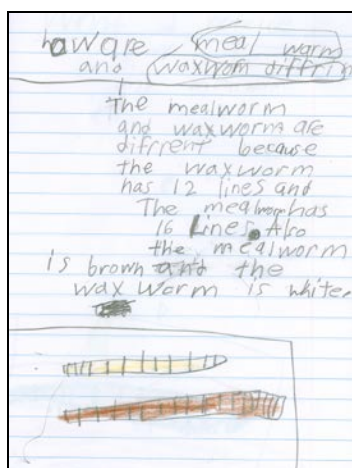 how are meal warm
and waxworm diffrin
The mealworm
and waxworm are
difrent because
the waxworm
has 12 lines and
The mealworm has
16 Lines. Also
the mealworm
is brown and the
wax worm is white.